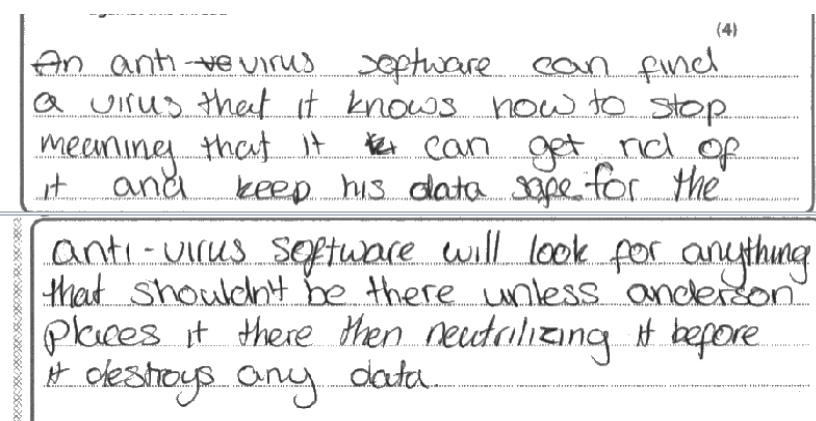 (4)
An anti-virus software can find
a virus that it knows how to stop
meaning that it can get rid of
it and keep his data safe. for the
anti-virus software will look for anything
that shouldn't be there unless anderson
places it there then neutrilizing it before
it destroys any data.